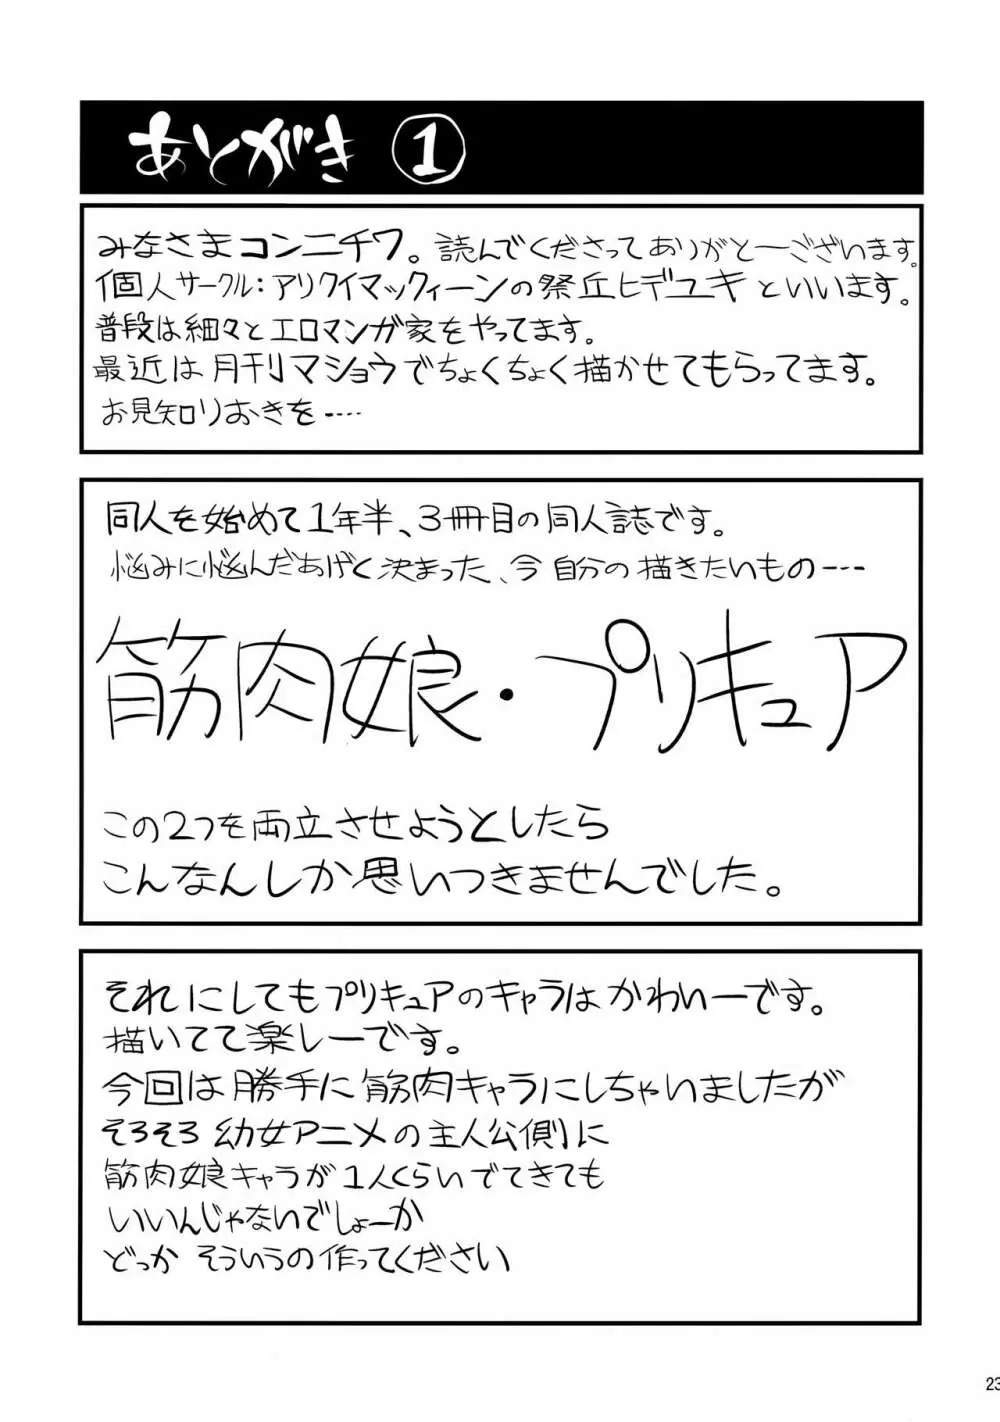 あとがき ①
みなさまコンニチワ。読んでくださってありがとーございます。
個人サークル：アリクイマックィーンの祭丘ヒデユキといいます。
普段は細々とエロマンガ家をやってます。
最近は月刊マショウでちょくちょく描かせてもらってます。
お見知りおきを----
同人を始めて1年半、3冊目の同人誌です。
悩みに悩んだあげく決まった、今自分の描きたいもの----
筋肉娘・プリキュア
この2つを両立させようとしたら
こんなんしか思いつきませんでした。
それにしてもプリキュアのキャラはかわいーです。
描いてて楽しーです。
今回は勝手に筋肉キャラにしちゃいましたが
そろそろ幼女アニメの主人公側に
筋肉娘キャラが1人くらいでてきても
いいんじゃないでしょーか
どっか そういうの作ってください
23